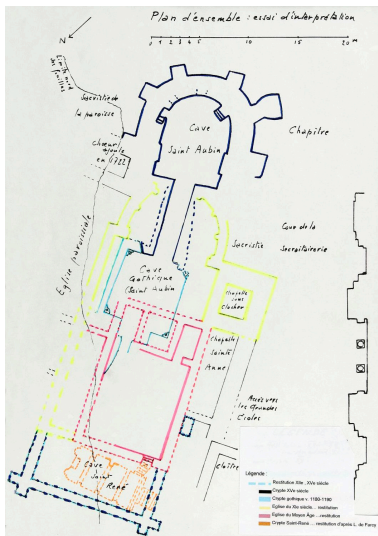 Plan d'ensemble : essai d'interprétation
N
0 1 2 3 4 5 10 15 20 m
Limite nord
des fouilles
Sacristie de
la paroisse
Chœur
ajouté
en 1722
Cave
Saint Aubin
Chapitre
Église paroissiale
Sacristie
Cour de la
Secrétairerie
Cave
Gothique
(Saint Aubin
Chapelle
sous
Clocher
Chapelle
Sainte
Anne
les Grandes
Écoles
Cloître
Cave
Saint
René
Légende :
Restitution XIIe , XVe siècle
Crypte XVe siècle
Crypte gothique v. 1180-1190
Église du XIe siècle ... restitution
Église du Moyen Âge ... restitution
Crypte Saint-René ... restitution d'après L. de Farcy